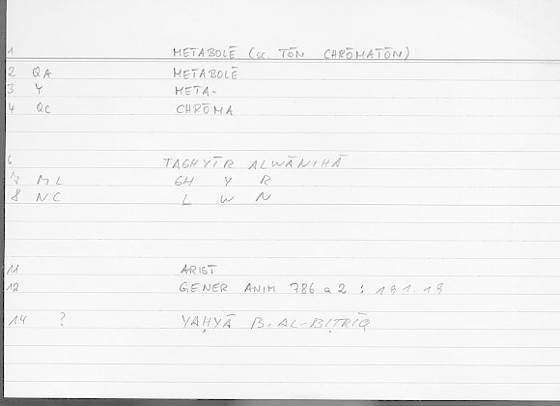 1 METABOLĒ (sc. TŌN CHRŌMATŌN)
2 QA METABOLĒ
3 Y META-
4 QC CHRŌMA
6 TAGHYĪR ALWĀNIHĀ
7 ML GH Y R
8 NC L W N
11 ARIST
12 GENER ANIM 786 a 2 : 191.19
14 ? YAḤYĀ B. AL-BIṬRĪQ